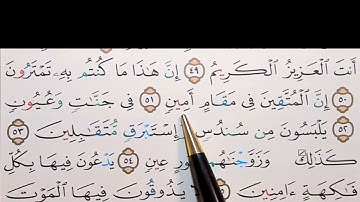 أَنتَ ٱلْعَزِيزُ ٱلْكَرِيمُ ٤٩ إِنَّ هَٰذَا مَا كُنتُم بِهِۦ تَمْتَرُونَ
٥٠ إِنَّ ٱلْمُتَّقِينَ فِى مَقَامٍ أَمِينٍ ٥١ فِى جَنَّٰتٍ وَعُيُونٍ
٥٢ يَلْبَسُونَ مِن سُندُسٍ وَإِسْتَبْرَقٍ مُّتَقَٰبِلِينَ ٥٣
كَذَٰلِكَ وَزَوَّجْنَٰهُم بِحُورٍ عِينٍ ٥٤ يَدْعُونَ فِيهَا بِكُلِّ
فَٰكِهَةٍ ءَامِنِينَ يَذُوقُونَ فِيهَا ٱلْمَوْتَ